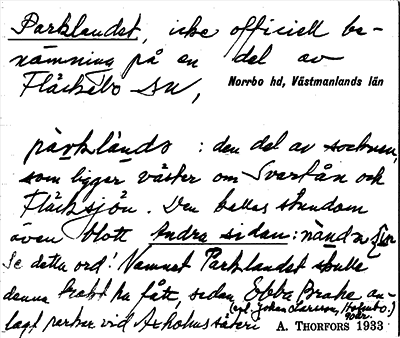 Parklandet, icke officiell be-
nämning på en del av
Fläckebo sn,
Norrbo hd, Västmanlands län
parklándə : den del av socknen,
som ligger väster om Svartån och
Fläcksjön. Den kallas stundom
även blott Andra sidan:
Se detta ord! Namnet Parklandet skulle
denna trakt ha fått, sedan Ebba Brahe an-
(enl. Johan Larsson, Holmbo.)
lagt parker vid säteri
A. THORFORS 1933